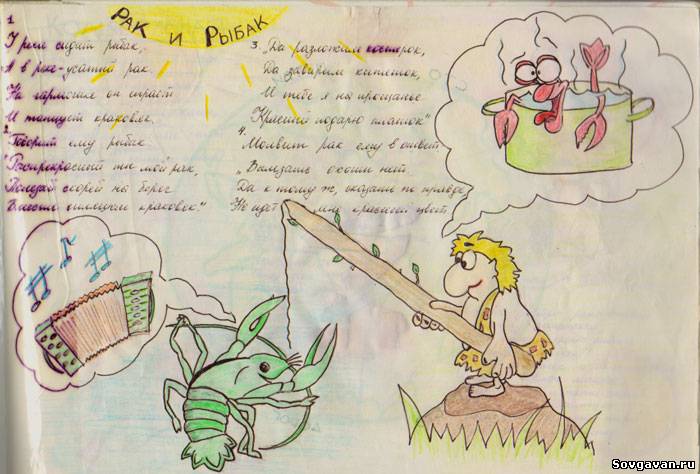 РАК И РЫБАК
1
У реки сидит рыбак,
А в реке – усатый рак.
На гармошке он играет
И танцует краковяк.
2.
Говорит ему рыбак
"Распрекрасный ты мой рак,
Полезай скорей на берег
Вместе спляшем краковяк"
3. Да разложим костерок,
Да заварим кипяток,
И тебе я на прощанье
Красный подарю платок"
4. Молвит рак ему в ответ:
"Вылезать охоты нет.
Да к тому ж, сказать по правде,
Не идет мне красный цвет.
Sovgavan.ru